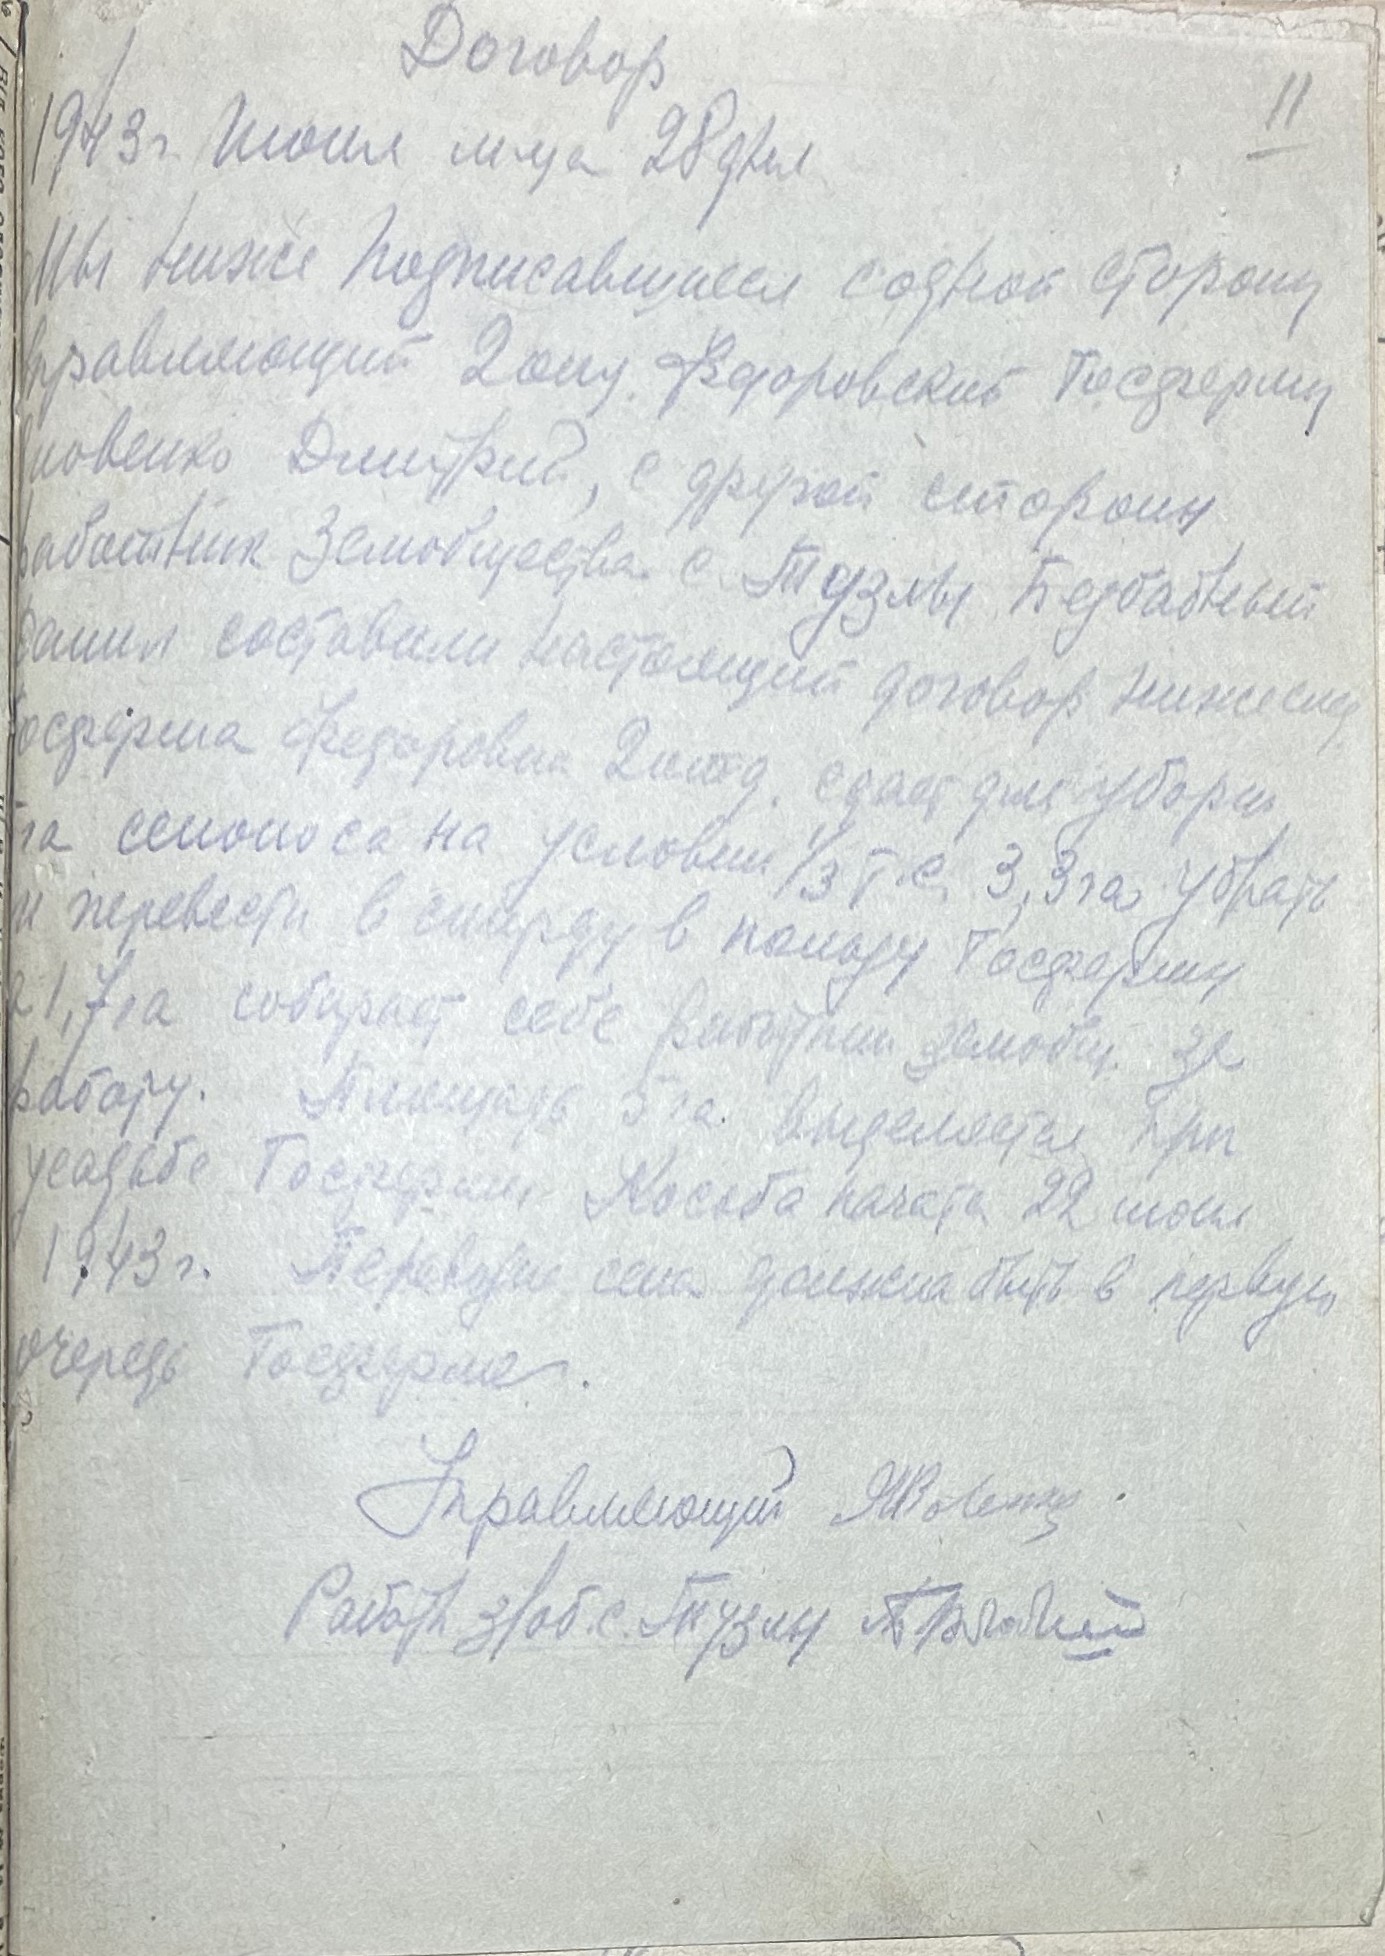 Договор
11
1943 г. Июня м-ца 28 дня
Мы ниже подписавшиеся с одной стороны
управляющий 2 Федоровский Госфермы
Дмитрий, с другой стороны
работник Земобщества с. Тузлы Безбабный
составили настоящий договор нижеслед
Госферма Федоровка 2 отд. сдает для уборки
га сенокоса на условии 1/3 т.е. 3,3 га убрать
и перевести в скирду в пользу Госфермы
а 1,7 га собирает себе работник земобщ. за
работу. Площадь 5 га. выделяется при
усадьбе Госфермы Косьба начата 22 июня
1943 г. Перевозка сена должна быть в первую
очередь Госферме.
Управляющий
Работн з/об. с. Тузлы